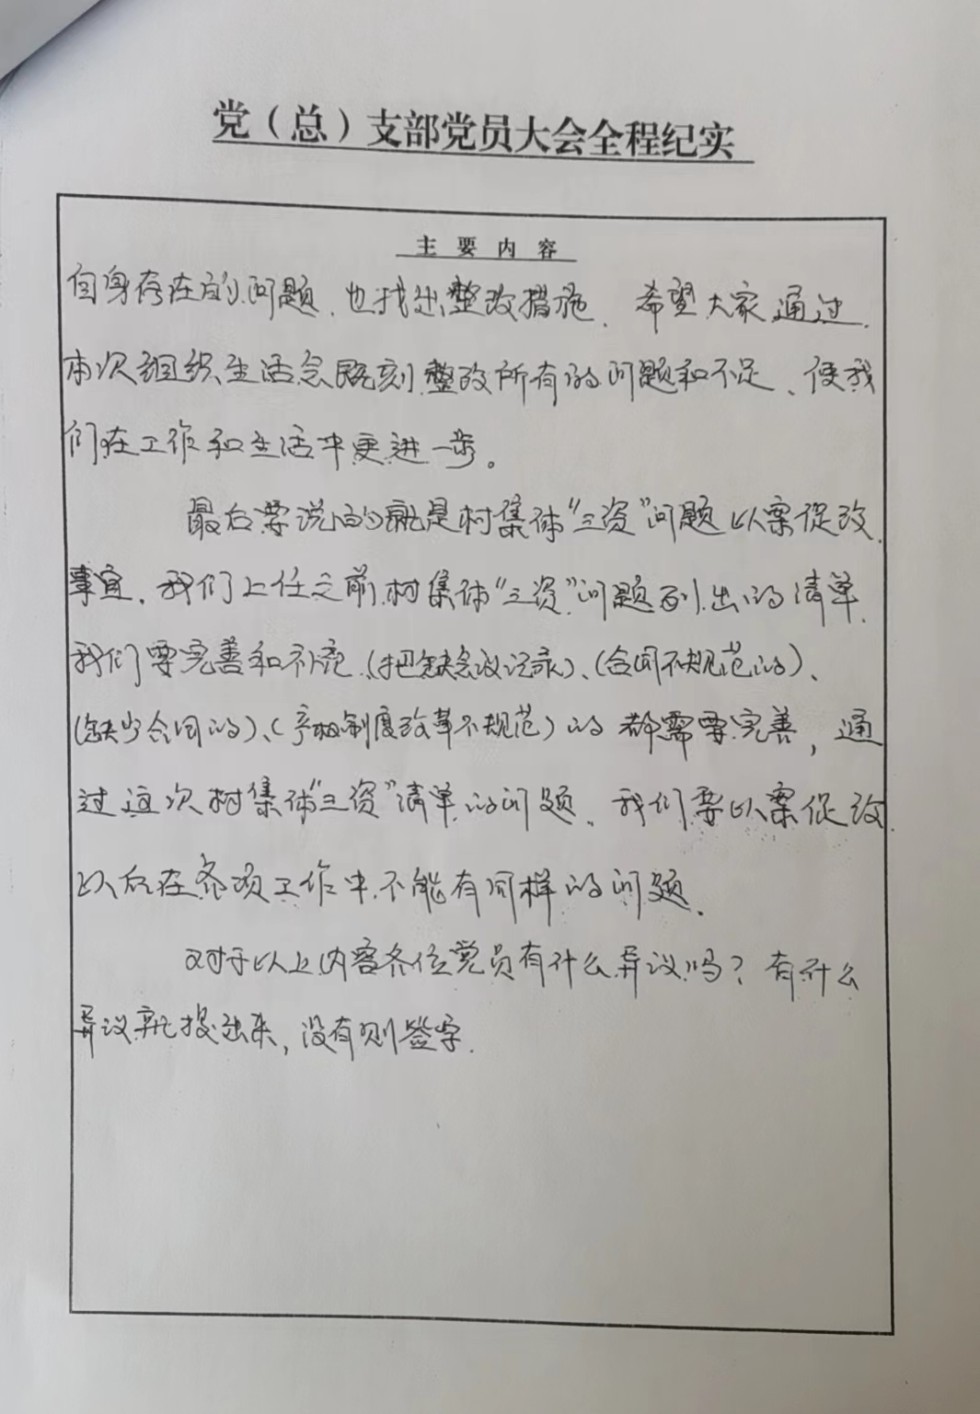 党（总）支部党员大会全程纪实
主要内容
自身存在的问题、也找出整改措施、希望大家通过
本次组织生活会既刻整改所有的问题和不足、使我
们在工作和生活中更进一步。
最后要说的就是村集体“三资”问题以案促改
事宜、我们上任之前村集体“三资”问题列出的清单、
我们要完善和补充、(把缺会议记录)、(合同不规范的)、
(缺少合同的)、(产权制度改革不规范)的都需要完善，通
过这次村集体“三资”清单的问题、我们要以案促改
以后在各项工作中不能有同样的问题、
对于以上内容各位党员有什么异议吗？有什么
异议就提出来，没有则签字.